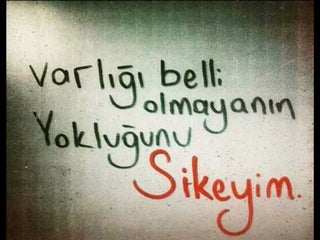 varlığı belli
olmayanın
Yokluğunu
Sikeyim.